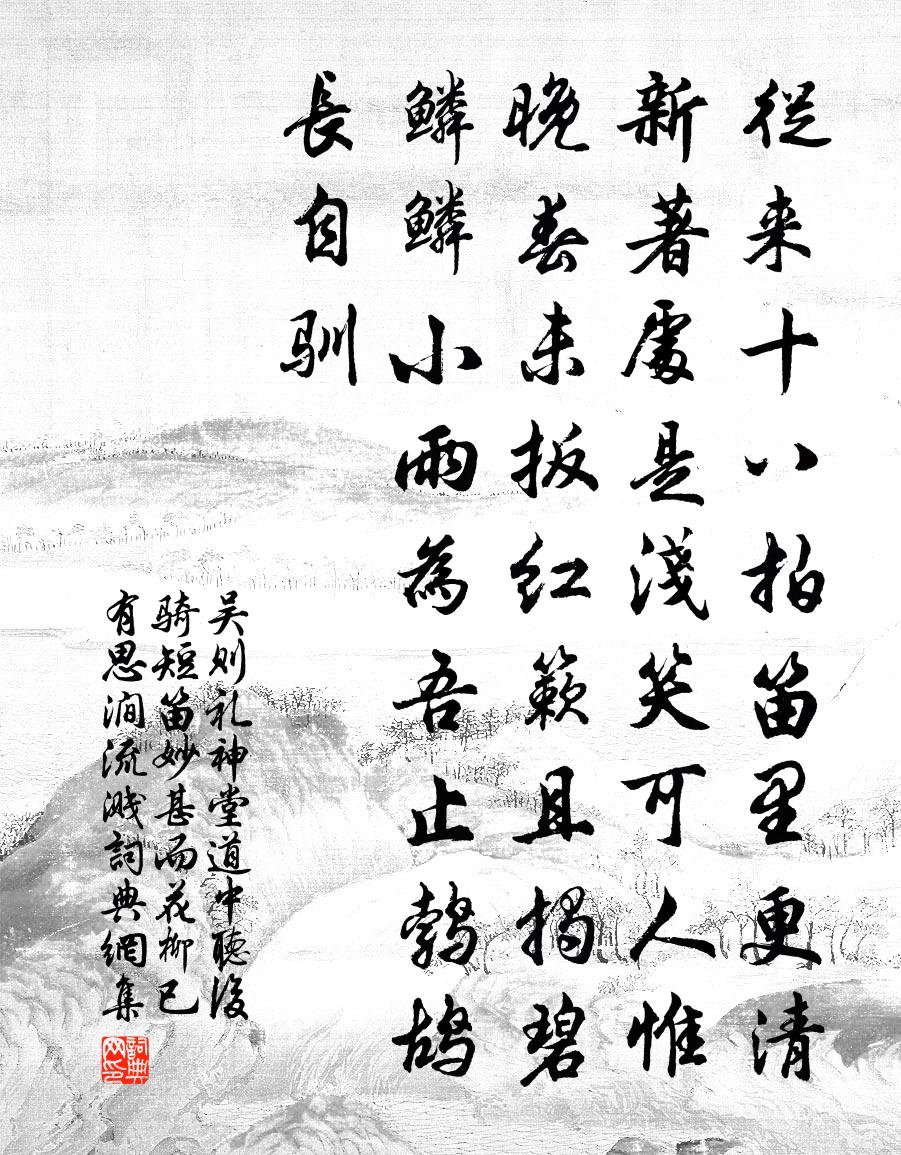 從来十八拍笛里更清
新著處是淺笑可人惟
晚春未扳红簌且揭碧
鱗鱗小雨為吾止鹁鸪
長自驯
吴则礼神堂道中聽後
骑短笛妙甚而花柳已
有思涧流溅詞典網集
詞典网印